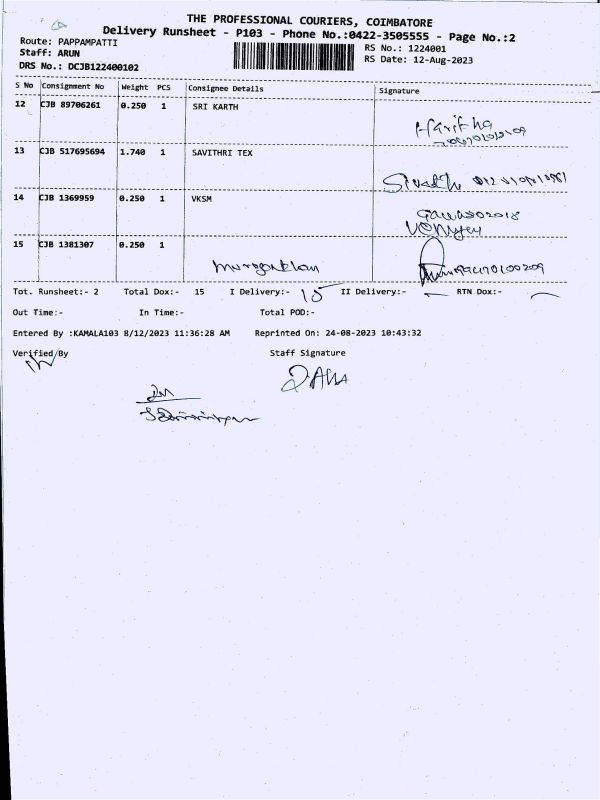 THE PROFESSIONAL COURIERS, COIMBATORE
Delivery Runsheet - P103 - Phone No.:0422-3505555 - Page No.:2
Route: PAPPAMPATTI
RS No.: 1224001
Staff: ARUN
RS Date: 12-Aug-2023
DRS No.: DCJB122400102
S No Consignment No Weight PCS Consignee Details Signature
12 CJB 89706261 0.250 1 SRI KARTH
Haritha
13 CJB 517695694 1.740 1 SAVITHRI TEX
14 CJB 1369959 0.250 1 VKSM
15 CJB 1381307 0.250 1
Tot. Runsheet:- 2 Total Dox:- 15 I Delivery:- 15 II Delivery:- RTN Dox:-
Out Time:- In Time:- Total POD:-
Entered By :KAMALA103 8/12/2023 11:36:28 AM Reprinted On: 24-08-2023 10:43:32
Verified By Staff Signature